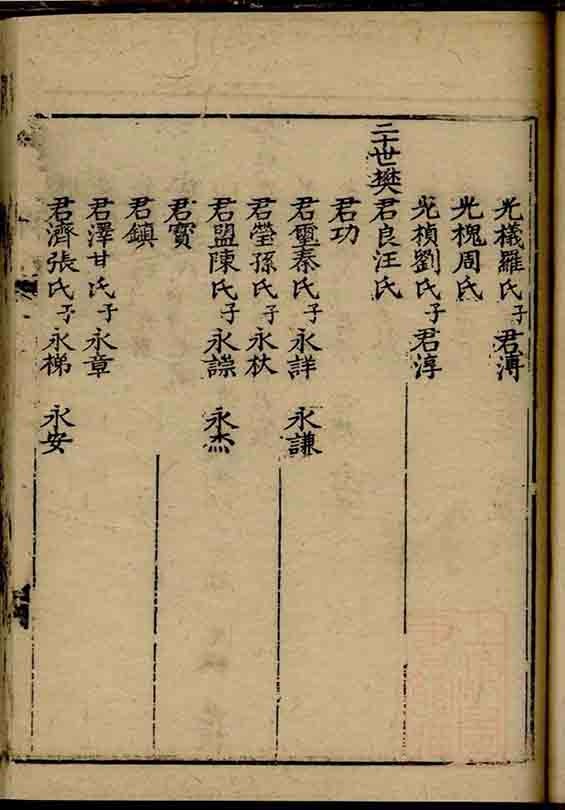 光檥羅氏子君溥
光槐周氏
光楨劉氏子君淳
二十世樊君良汪氏
君功
君璽秦氏子永詳 永謙
君瑩孫氏子永杕
君盟陳氏子永譔 永杰
君寳
君鎮
君澤甘氏子永章
君濟張氏子永梯 永安